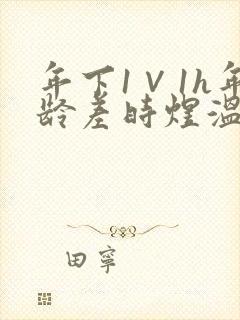 年下1V1h年
龄差时煜温
田寧